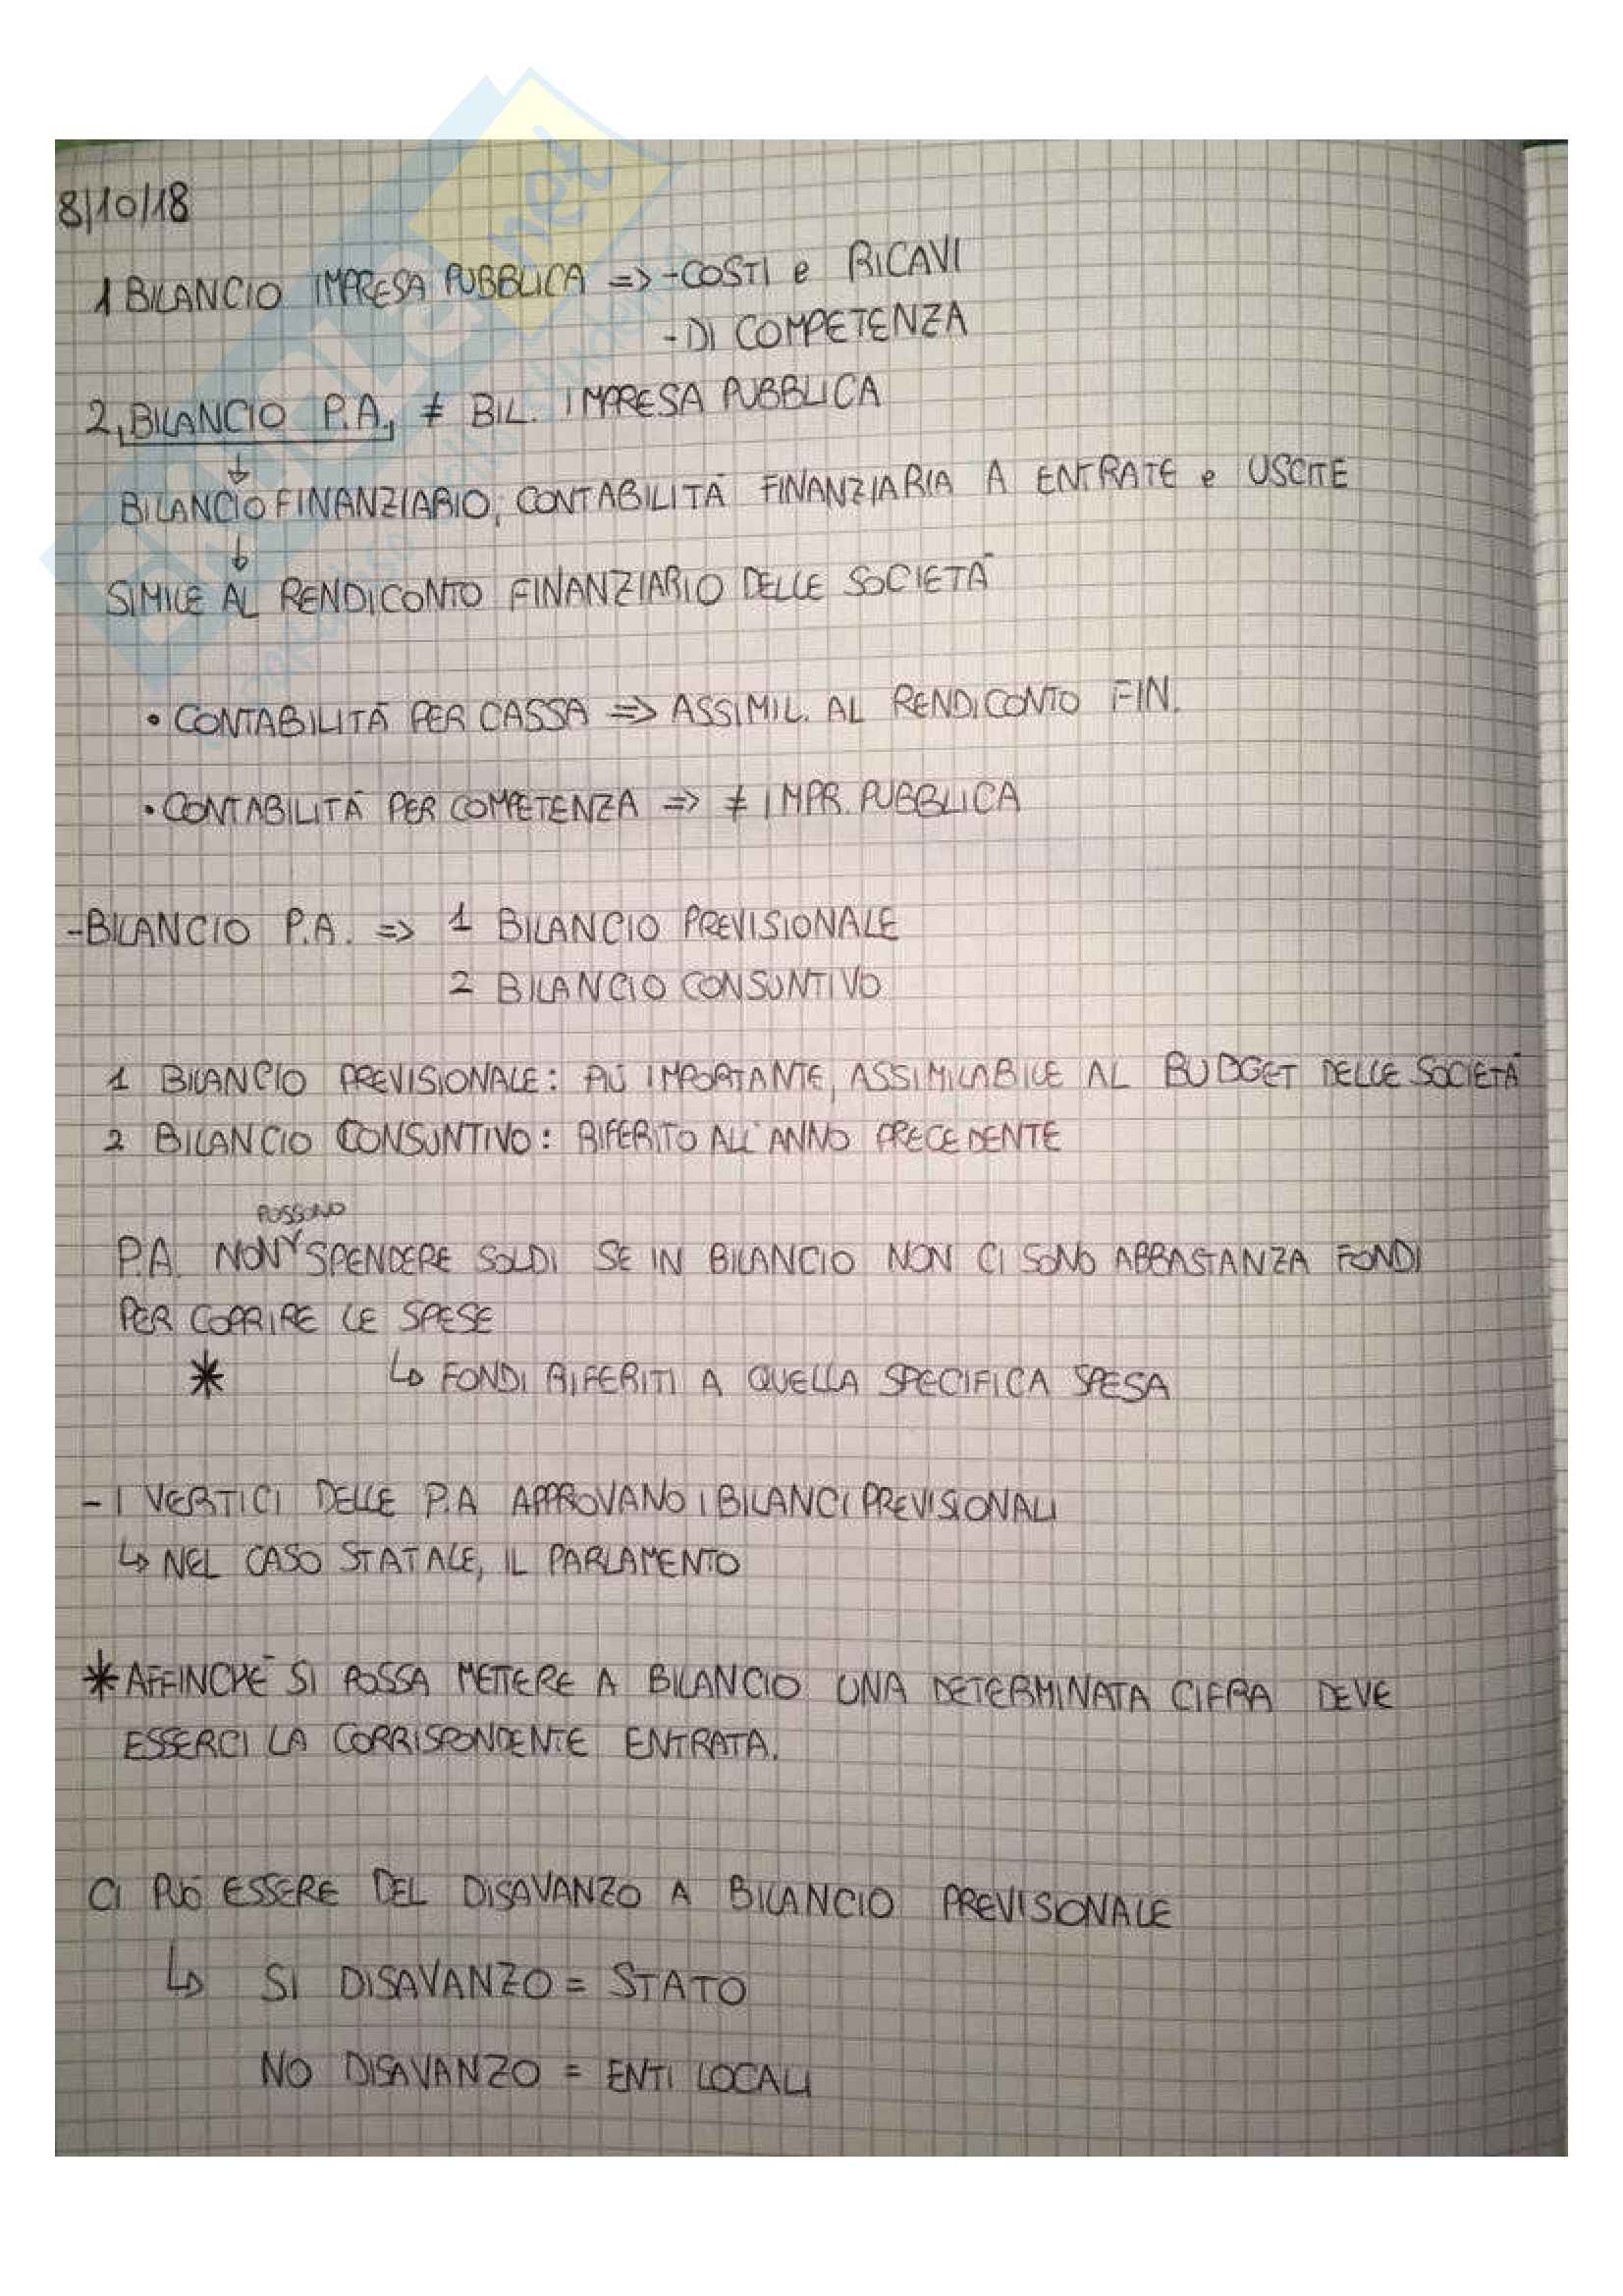 8/10/18
1 BILANCIO IMPRESA PUBBLICA => - COSTI e RICAVI
- DI COMPETENZA
2, BILANCIO P.A., ≠ BIL. IMPRESA PUBBLICA
↓
BILANCIO FINANZIARIO, CONTABILITÀ FINANZIARIA A ENTRATE e USCITE
↓
SIMILE AL RENDICONTO FINANZIARIO DELLE SOCIETÀ
• CONTABILITÀ PER CASSA => ASSIMIL. AL RENDICONTO FIN.
• CONTABILITÀ PER COMPETENZA => ≠ IMPR. PUBBLICA
- BILANCIO P.A. => 1 BILANCIO PREVISIONALE
2 BILANCIO CONSUNTIVO
1 BILANCIO PREVISIONALE: PIÙ IMPORTANTE, ASSIMILABILE AL BUDGET DELLE SOCIETÀ
2 BILANCIO CONSUNTIVO: RIFERITO ALL'ANNO PRECEDENTE
POSSONO
P.A. NON SPENDERE SOLDI SE IN BILANCIO NON CI SONO ABBASTANZA FONDI
PER COPRIRE LE SPESE
* ↳ FONDI RIFERITI A QUELLA SPECIFICA SPESA
- I VERTICI DELLE P.A APPROVANO I BILANCI PREVISIONALI
↳ NEL CASO STATALE, IL PARLAMENTO
* AFFINCHÈ SI POSSA METTERE A BILANCIO UNA DETERMINATA CIFRA DEVE
ESSERCI LA CORRISPONDENTE ENTRATA.
CI PUÒ ESSERE DEL DISAVANZO A BILANCIO PREVISIONALE
↳ SI DISAVANZO = STATO
NO DISAVANZO = ENTI LOCALI